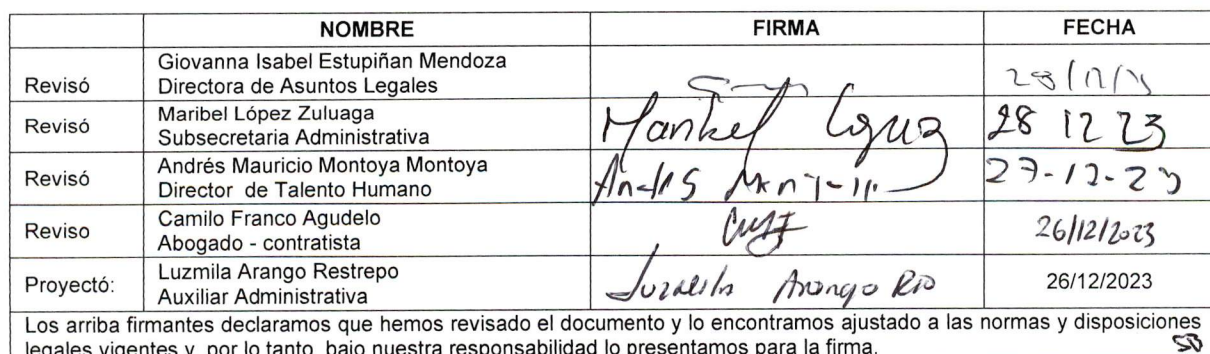 NOMBRE FIRMA FECHA
Giovanna Isabel Estupiñan Mendoza
Revisó Directora de Asuntos Legales 28/12/23
Maribel López Zuluaga
Revisó Subsecretaria Administrativa Maribel 28 12 23
Andrés Mauricio Montoya Montoya
Revisó Director de Talento Humano Andrés 27-12-23
Camilo Franco Agudelo
Reviso Abogado - contratista 26/12/2023
Luzmila Arango Restrepo
Proyectó: Auxiliar Administrativa Luzmila Arango 26/12/2023
Los arriba firmantes declaramos que hemos revisado el documento y lo encontramos ajustado a las normas y disposiciones
legales vigentes y, por lo tanto, bajo nuestra responsabilidad lo presentamos para la firma.